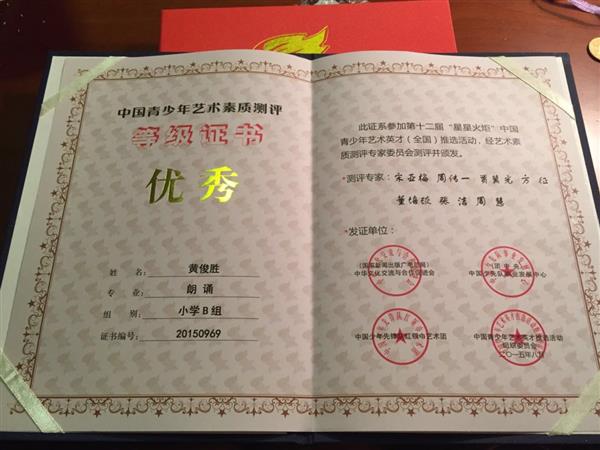 中国青少年艺术素质测评
等级证书
优秀
姓名: 黄俊胜
专业: 朗诵
组别: 小学B组
证书编号: 20150969
此证系参加第十二届“星星火炬”中国
青少年艺术英才(全国)推选活动,经艺术素
质测评专家委员会测评并颁发。
*测评专家: 宋亚梅 周传一 方征
张洁 周慧
*发证单位:
(国家新闻出版广电总局)
中华文化交流与合作促进会
(团中央)
中国少先队事业发展中心
中国少年先锋队红领巾艺术团
中国青少年艺术英才推选活动
组织委员会
二〇一五年八月